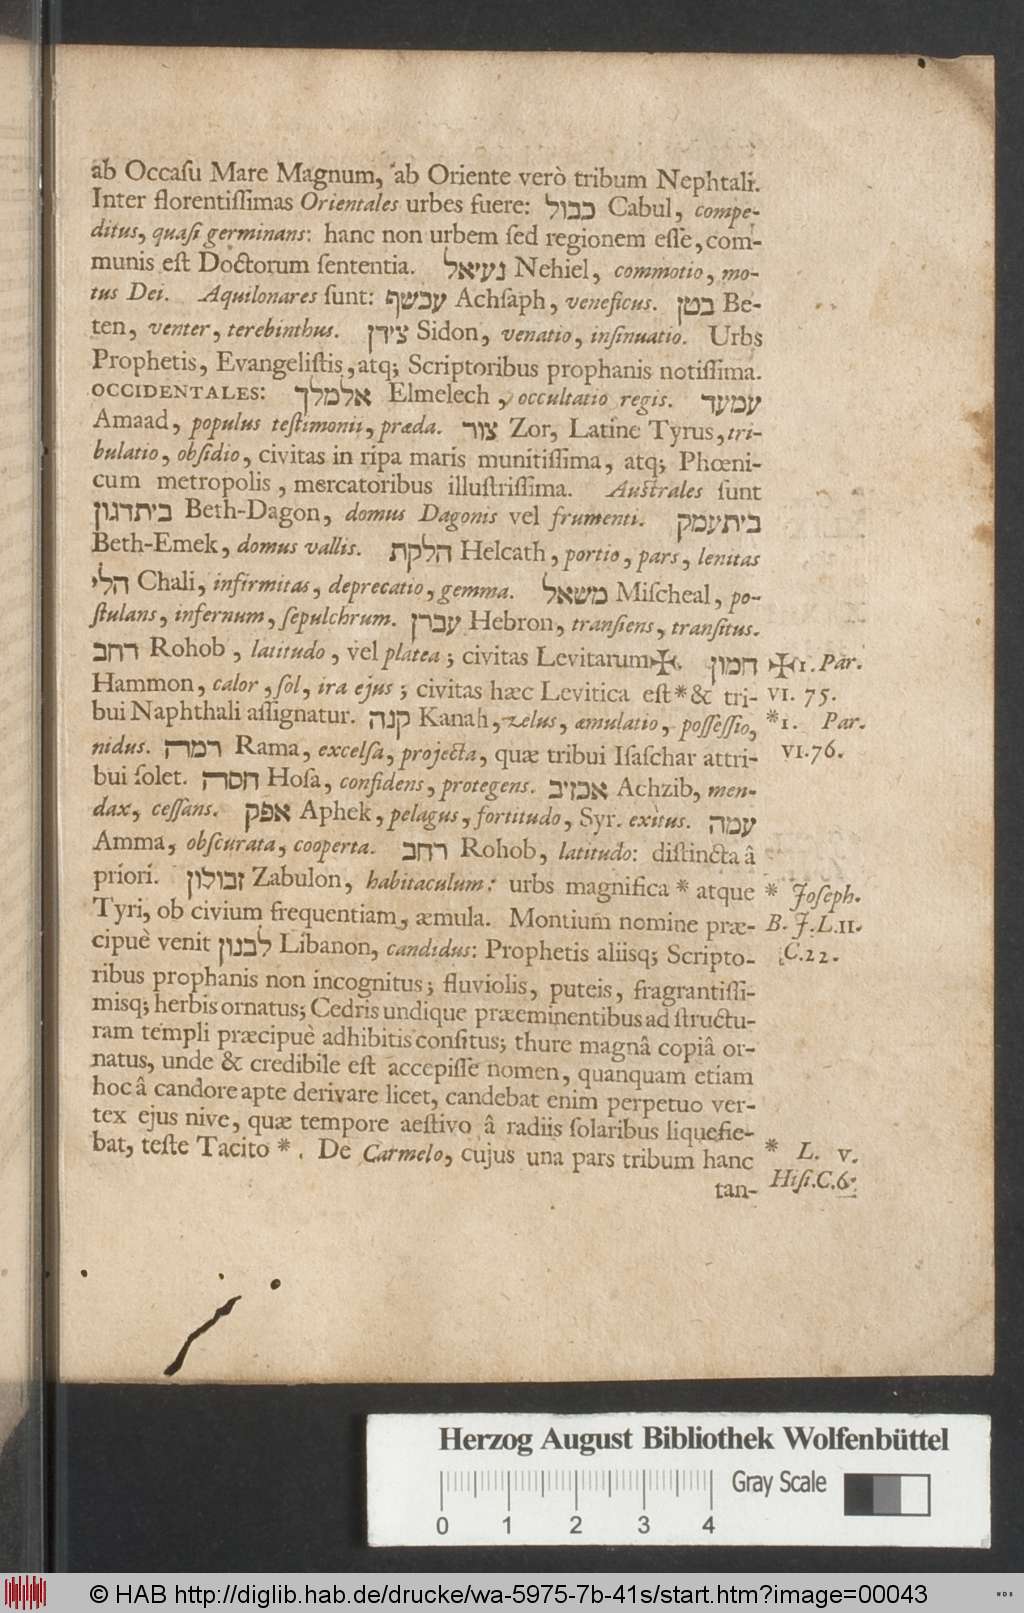 ab Occaſu Mare Magnum, ab Oriente verò tribum Nephtali.
Inter florentiſſimas Orientales urbes fuere: כבול Cabul, compe-
ditus, quaſi germinans: hanc non urbem ſed regionem eſſe, com-
munis eſt Doctorum ſententia. נעיאל Nehiel, commotio, mo-
tus Dei. Aquilonares ſunt: עכשף Achſaph, veneficus. בטן Be-
ten, venter, terebinthus. צידן Sidon, venatio, inſinuatio. Urbs
Prophetis, Evangeliſtis, atq; Scriptoribus prophanis notiſſima.
OCCIDENTALES: אלמלך Elmelech, occultatio regis. עמעד
Amaad, populus teſtimonii, præda. צור Zor, Latine Tyrus, tri-
bulatio, obſidio, civitas in ripa maris munitiſſima, atq; Phœni-
cum metropolis, mercatoribus illuſtriſſima. Auſtrales ſunt
ביתדגון Beth-Dagon, domus Dagonis vel frumenti. ביתעמק
Beth-Emek, domus vallis. הלקת Helcath, portio, pars, lenitas
הלי Chali, infirmitas, deprecatio, gemma. משאל Miſcheal, po-
ſtulans, infernum, ſepulchrum. עברן Hebron, tranſiens, tranſitus.
רחב Rohob, latitudo, vel platea; civitas Levitarum✠. חמון
✠1. Par.
Hammon, calor, ſol, ira ejus; civitas hæc Levitica eſt * & tri-
VI. 75.
bui Naphthali aſſignatur. קנה Kanah, zelus, æmulatio, poſſeſſio,
*1. Par.
nidus. רמה Rama, excelſa, projecta, quæ tribui Iſaſchar attri-
VI.76.
bui ſolet. חסה Hoſa, confidens, protegens. אכזיב Achzib, men-
dax, ceſſans. אפק Aphek, pelagus, fortitudo, Syr. exitus. עמה
Amma, obſcurata, cooperta. רחב Rohob, latitudo: diſtincta â
priori. זבולון Zabulon, habitaculum: urbs magnifica * atque
* Joſeph.
Tyri, ob civium frequentiam, æmula. Montium nomine præ-
B. J. L.II.
cipuè venit לבנון Libanon, candidus: Prophetis aliisq; Scripto-
C.22.
ribus prophanis non incognitus; fluviolis, puteis, fragrantiſſi-
misq; herbis ornatus; Cedris undique præeminentibus ad ſtructu-
ram templi præcipuè adhibitis conſitus; thure magnâ copiâ or-
natus, unde & credibile eſt accepiſſe nomen, quanquam etiam
hoc â candore apte derivare licet, candebat enim perpetuo ver-
tex ejus nive, quæ tempore aeſtivo â radiis ſolaribus liquefie-
bat, teſte Tacito *. De Carmelo, cujus una pars tribum hanc
* L. V.
Hiſt.C.6.
tan-
Herzog August Bibliothek Wolfenbüttel
Gray Scale
0 1 2 3 4
© HAB http://diglib.hab.de/drucke/wa-5975-7b-41s/start.htm?image=00043